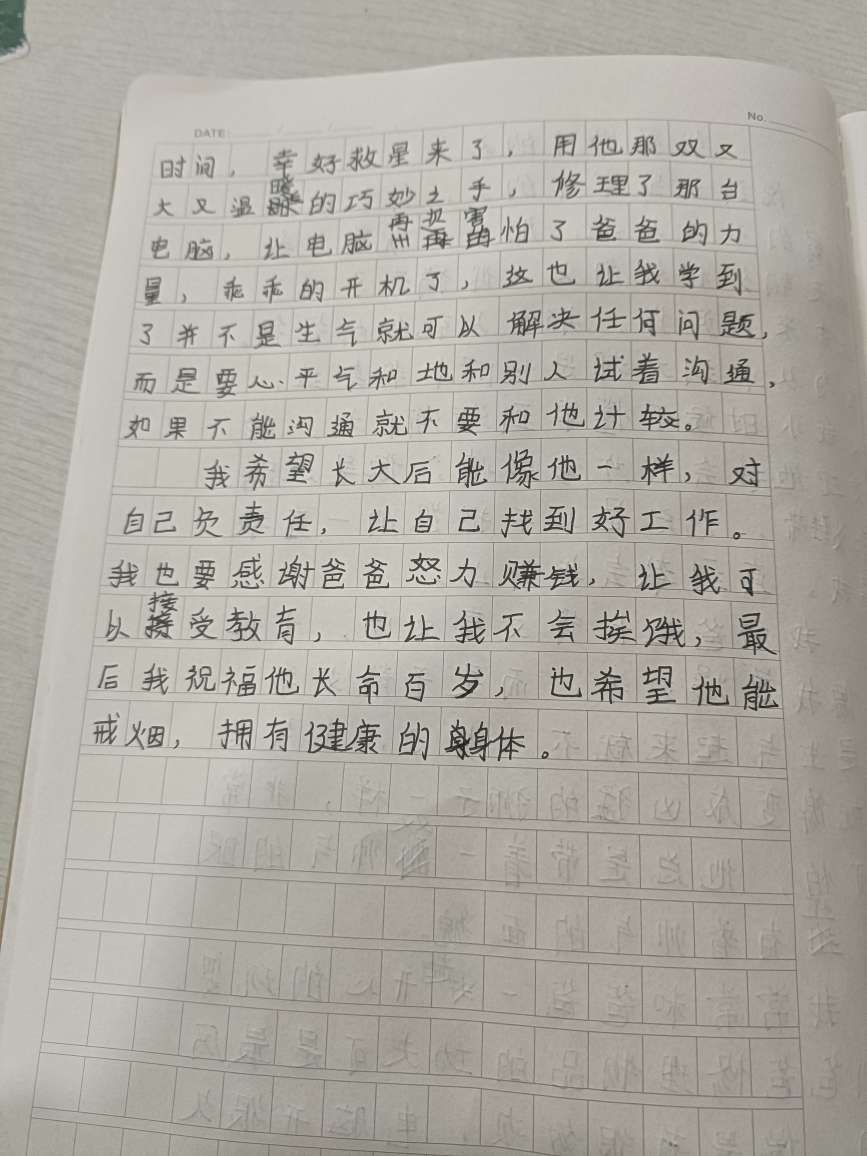 DATE: / /
No.
时间，幸好救星来了，用他那双又
大又温暖的巧妙之手，修理了那台
电脑，让电脑再次害怕了爸爸的力
量，乖乖的开机了，这也让我学到
了并不是生气就可以解决任何问题，
而是要心平气和地和别人试着沟通，
如果不能沟通就不要和他计较。
我希望长大后能像他一样，对
自己负责任，让自己找到好工作。
我也要感谢爸爸怒力赚钱，让我可
以接受教育，也让我不会挨饿，最
后我祝福他长命百岁，也希望他能
戒烟，拥有健康的身体。